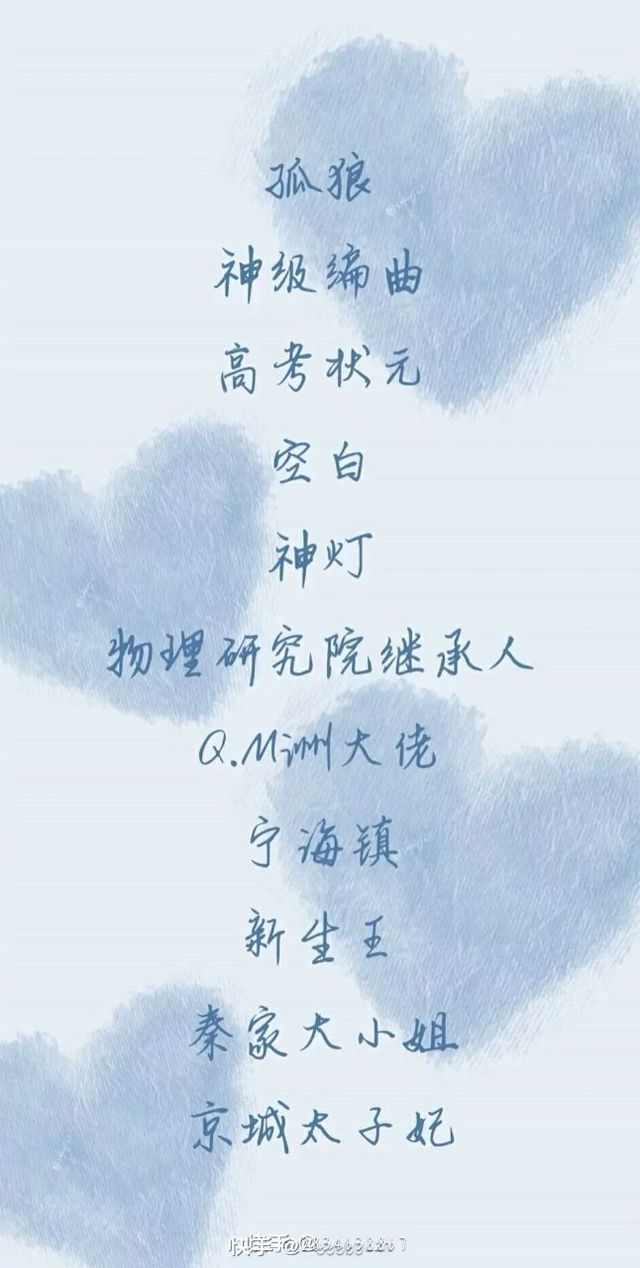 孤狼
神级编曲
高考状元
空白
神灯
物理研究院继承人
Q.M洲大佬
宁海镇
新生王
秦家大小姐
京城太子妃
快手